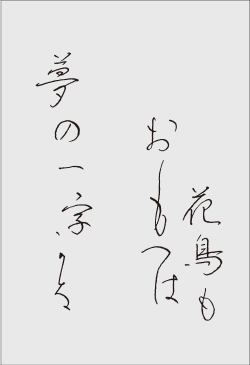 花鳥も
おもへは
夢の一字かな